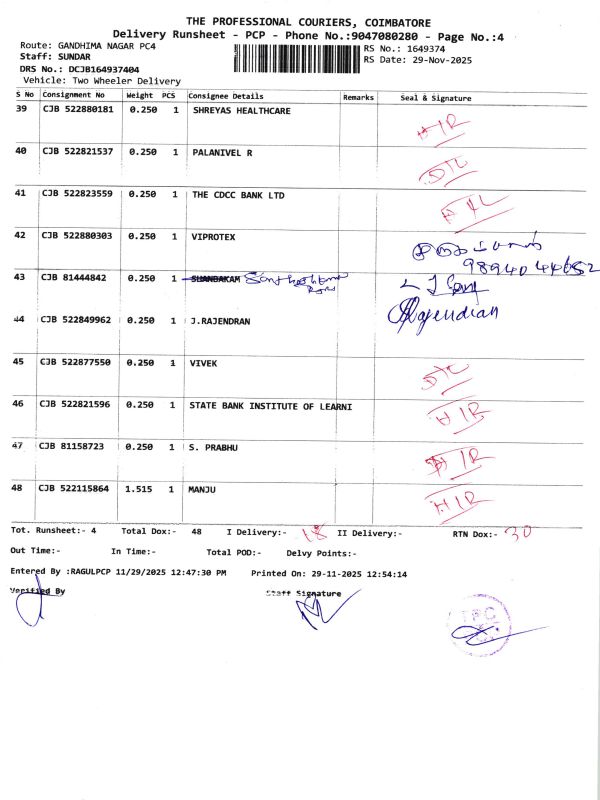 THE PROFESSIONAL COURIERS, COIMBATORE
Delivery Runsheet - PCP - Phone No.:9047080280 - Page No.:4
Route: GANDHIMA NAGAR PC4
RS No.: 1649374
Staff: SUNDAR
RS Date: 29-Nov-2025
DRS No.: DCJB164937404
Vehicle: Two Wheeler Delivery
S No Consignment No Weight PCS Consignee Details Remarks Seal & Signature
39 CJB 522880181 0.250 1 SHREYAS HEALTHCARE HIR
40 CJB 522821537 0.250 1 PALANIVEL R D/L
41 CJB 522823559 0.250 1 THE CDCC BANK LTD
42 CJB 522880303 0.250 1 VIPROTEX
9894044652
43 CJB 81444842 0.250 1
44 CJB 522849962 0.250 1 J.RAJENDRAN Rajendian
45 CJB 522877550 0.250 1 VIVEK D/L
46 CJB 522821596 0.250 1 STATE BANK INSTITUTE OF LEARNI HIR
47 CJB 81158723 0.250 1 S. PRABHU HIR
48 CJB 522115864 1.515 1 MANJU HIR
Tot. Runsheet:- 4 Total Dox:- 48 I Delivery:- 18 II Delivery:- RTN Dox:- 30
Out Time:- In Time:- Total POD:- Delvy Points:-
Entered By :RAGULPCP 11/29/2025 12:47:30 PM Printed On: 29-11-2025 12:54:14
Verified By Staff Signature